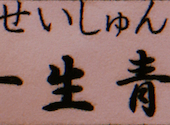 せいしゅん
一生青